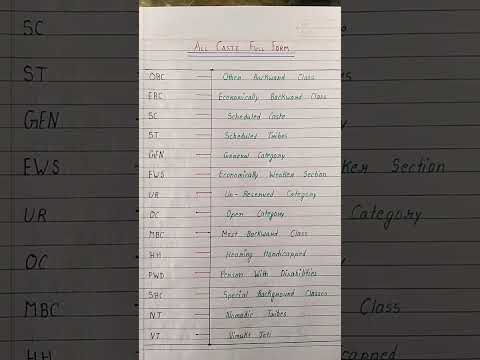 SC
ST
GEN
EWS
UR
OC
MBC
HH
ALL CASTE FULL FORM
OBC — Other Backward Class
EBC — Economically Backward Class
SC — Scheduled Caste
ST — Scheduled Tribes
GEN — General Category
EWS — Economically Weaker Section
UR — Un-Reserved Category
OC — Open Category
MBC — Most Backward Class
HH — Hearing Handicapped
PWD — Person With Disabilities
SBC — Special Background Classes
NT — Nomadic Tribes
VJ — Vimukt Jati
ker Section
Category
Class